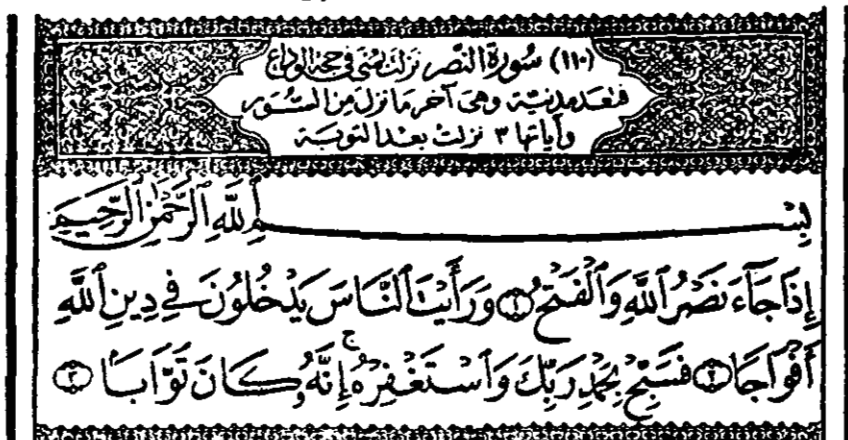 (١١٠) سُورَةُ النَّصْرِ نَزَلَتْ بِمِنًى فِي حَجَّةِ الوَدَاعِ
فتعَدّ مَدَنِيَّة وَهِيَ آخِرُ مَا نَزَلَ مِنَ السُّوَرِ
وَآيَاتُهَا ٣ نَزَلَتْ بَعْدَ التَّوْبَةِ
بِسْمِ ٱللَّهِ ٱلرَّحْمَٰنِ ٱلرَّحِيمِ
إِذَا جَآءَ نَصْرُ ٱللَّهِ وَٱلْفَتْحُ ١ وَرَأَيْتَ ٱلنَّاسَ يَدْخُلُونَ فِي دِينِ ٱللَّهِ
أَفْوَاجًا ٢ فَسَبِّحْ بِحَمْدِ رَبِّكَ وَٱسْتَغْفِرْهُ ۚ إِنَّهُۥ كَانَ تَوَّابًۢا ٣